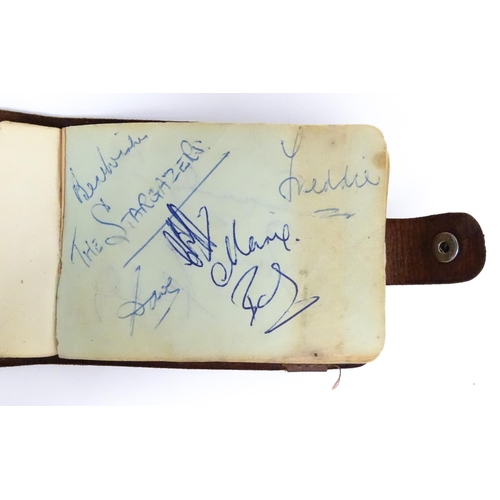 Best wishes
THE STARGAZERS.
Freddie
Marie.
Dave
Bob